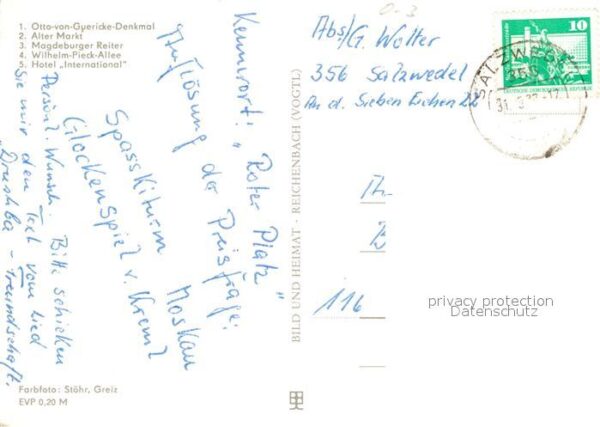 1. Otto-von-Gyericke-Denkmal
2. Alter Markt
3. Magdeburger Reiter
4. Wilhelm-Pieck-Allee
5. Hotel „International"
Kennwort: „Roter Platz"
Auflösung der Preisfrage:
Spasskiturm Moskau
Glockenspiel v. Kreml
Persönl. Wunsch: Bitte schicken
Sie mir den Text vom Lied
"Drushba - Freundschaft.
Farbfoto: Stöhr, Greiz
EVP 0,20 M
BILD UND HEIMAT · REICHENBACH (VOGTL)
0-3
Abs/G. Wolter
356 Salzwedel
An d. Sieben Eichen 22
10
DEUTSCHE DEMOKRATISCHE REPUBLIK
SALZWEDEL
356
116
privacy protection
Datenschutz